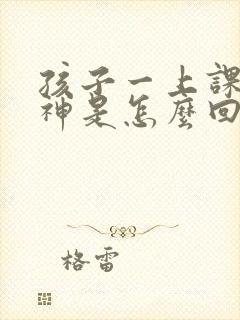 孩子一上課
神是怎麼回
格雷